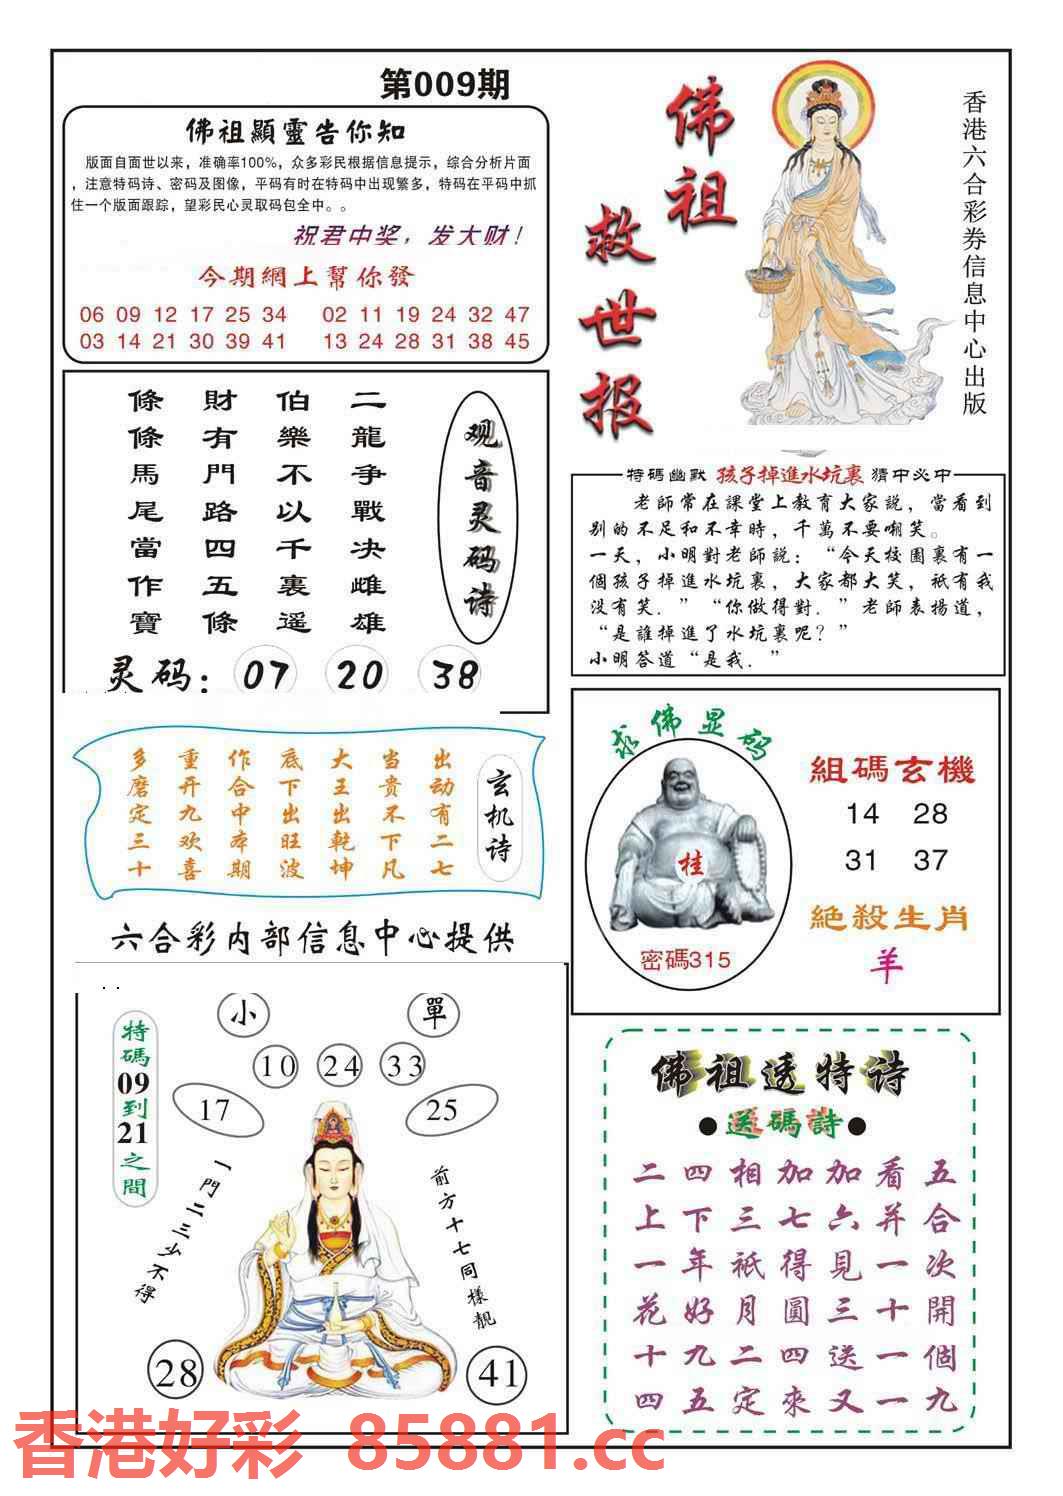 第009期
佛祖顯靈告你知
版面自面世以来，准确率100%，众多彩民根据信息提示，综合分析片面
，注意特码诗、密码及图像，平码有时在特码中出现繁多，特码在平码中抓
住一个版面跟踪，望彩民心灵取码包全中。。
祝君中奖，发大财！
今期網上幫你發
06 09 12 17 25 34 02 11 19 24 32 47
03 14 21 30 39 41 13 24 28 31 38 45
佛祖
救世报
香港六合彩券信息中心出版
观音灵码诗
二龍争戰决雌雄
伯樂不以千裏遥
財有門路四五條
條條馬尾當作寶
灵码：07 20 38
特碼幽默 孩子掉進水坑裏 猜中必中
老師常在課堂上教育大家説，當看到
别的不足和不幸時，千萬不要嘲笑。
一天，小明對老師説：“今天校園裏有一
個孩子掉進水坑裏，大家都大笑，衹有我
没有笑．”“你做得對．”老師表揚道，
“是誰掉進了水坑裏呢？”
小明答道“是我．”
玄机诗
出动有二七
当贵不下凡
大王出乾坤
底下出旺波
作合中本期
重开九欢喜
多磨定三十
求佛显码
桂
密碼315
組碼玄機
14 28
31 37
絕殺生肖
羊
六合彩内部信息中心提供
特碼09到21之間
小 單
10 24 33
17 25
一門二三少不得
前方十七同樣靚
28 41
佛祖透特诗
●送碼詩●
二四相加加看五
上下三七六并合
一年祇得見一次
花好月圓三十開
十九二四送一個
四五定來又一九
香港好彩 85881.cc